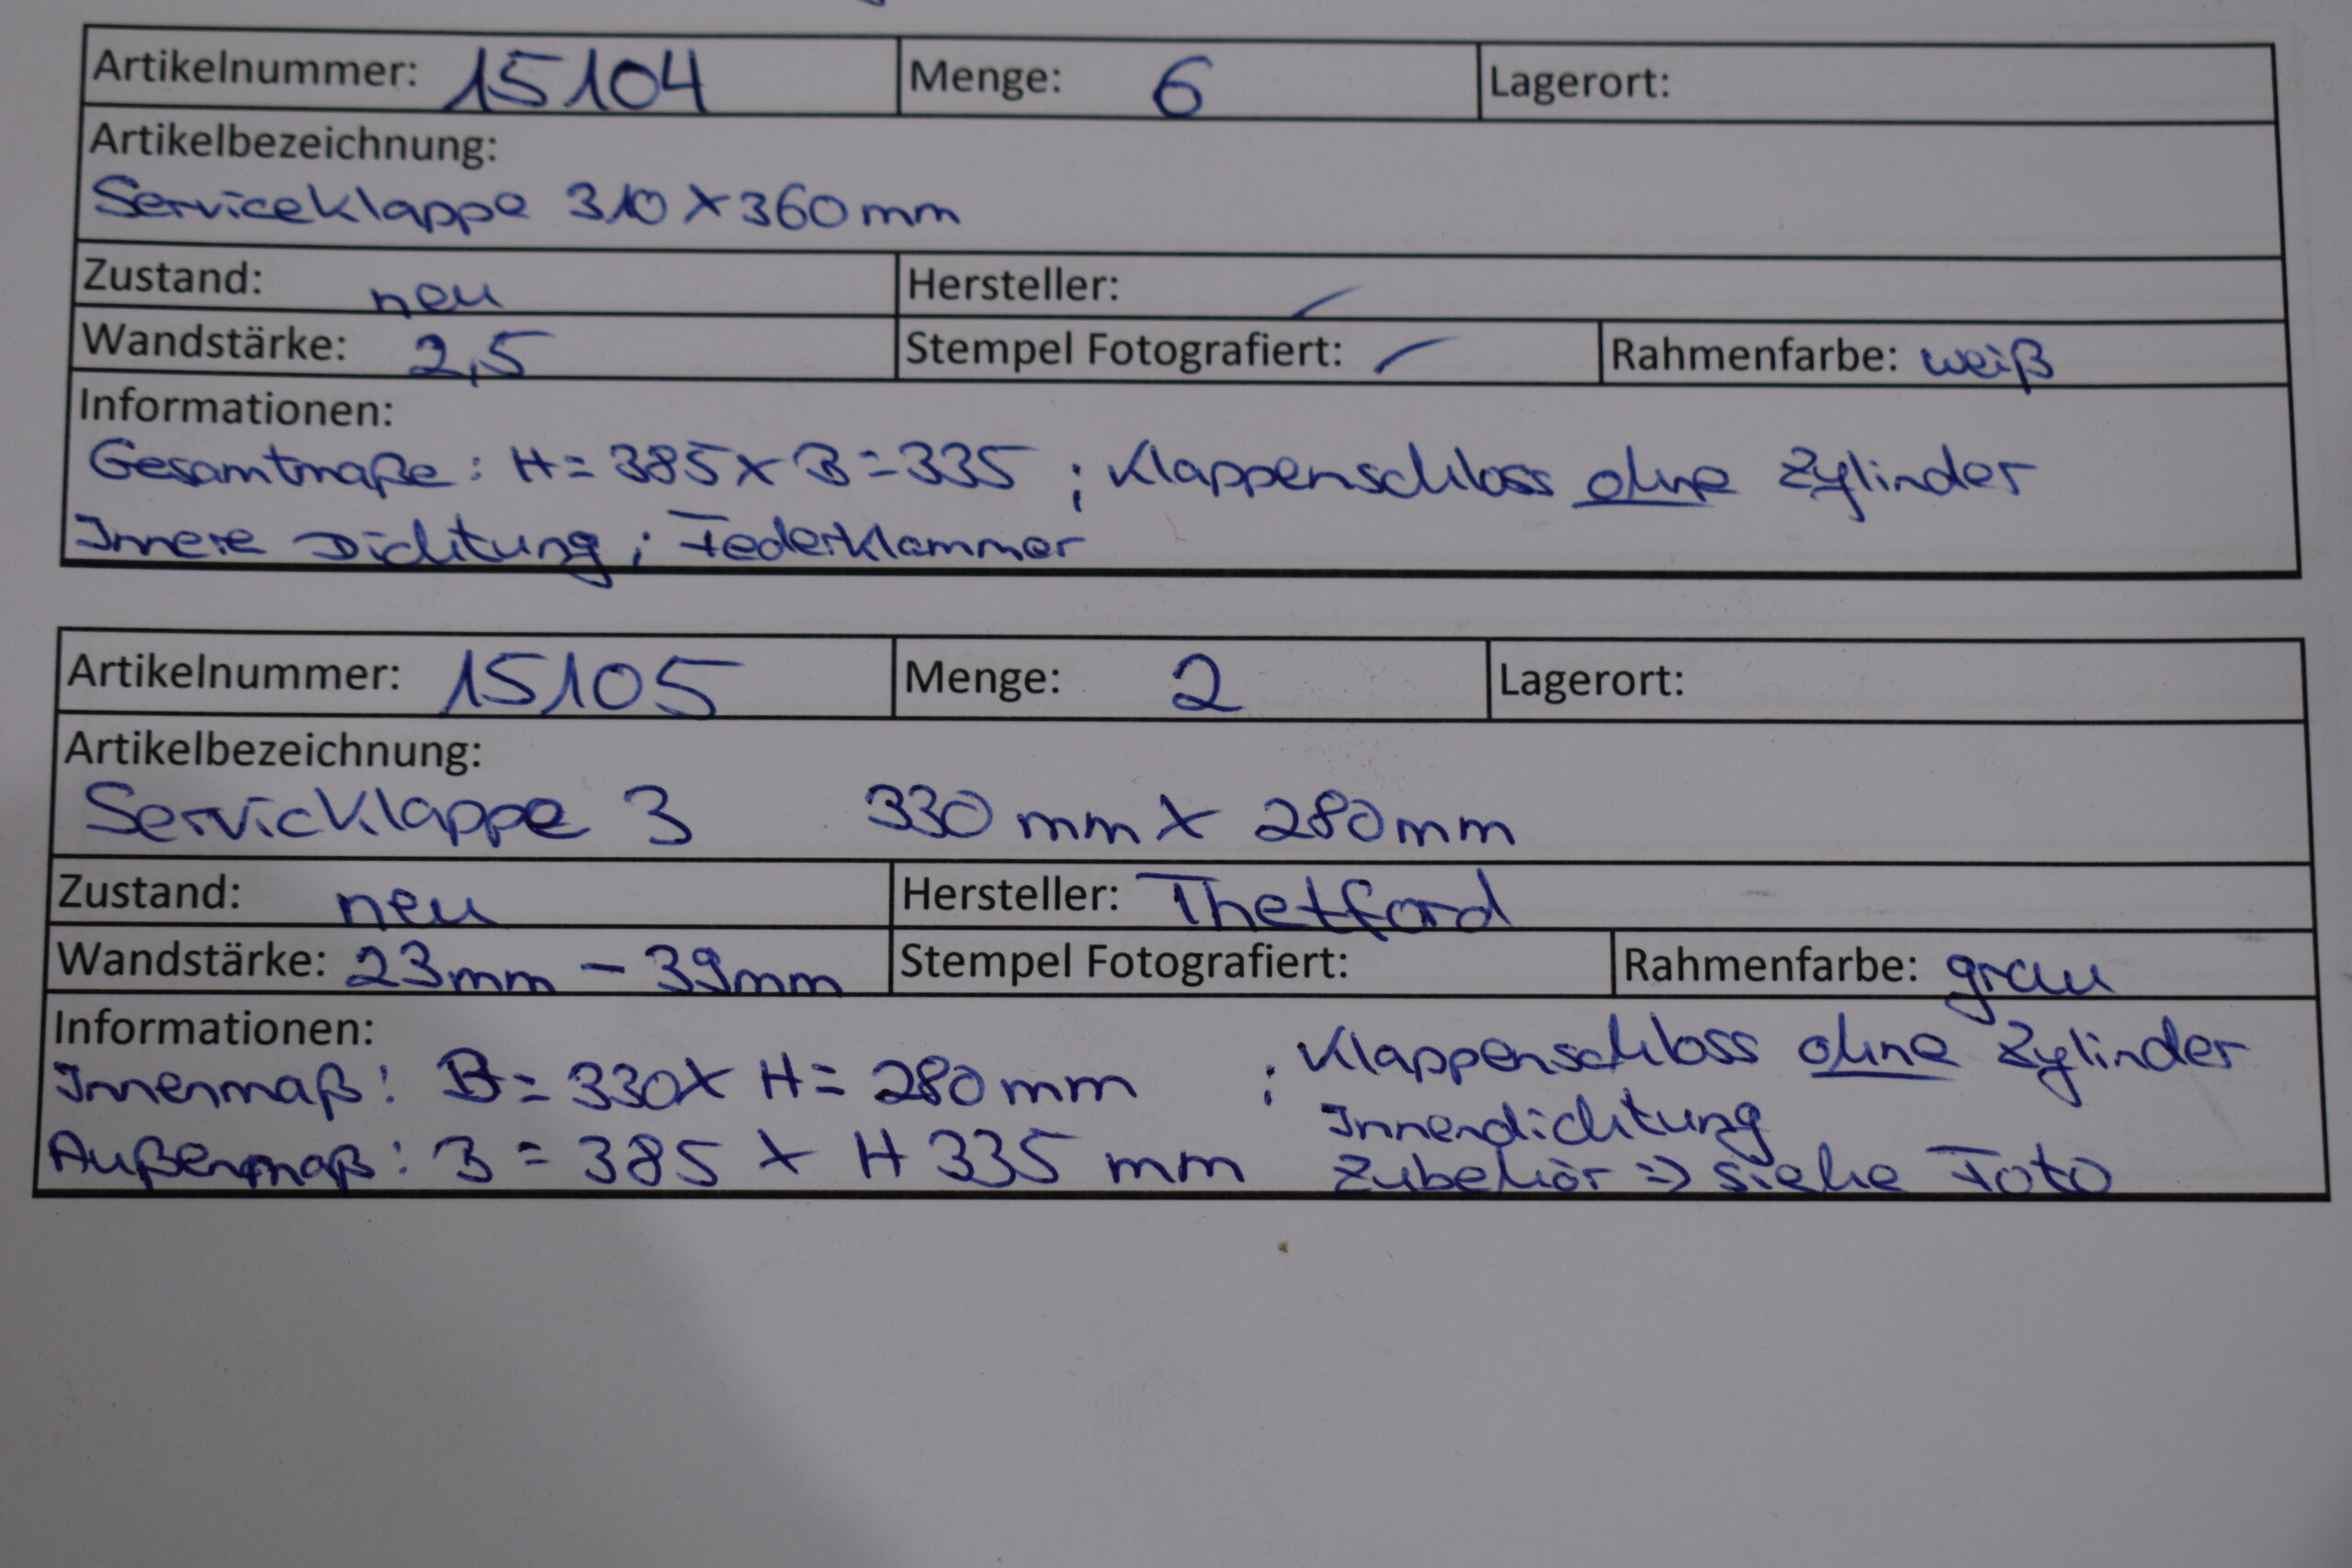 Artikelnummer: 15104 Menge: 6 Lagerort:
Artikelbezeichnung:
Serviceklappe 310 x 360mm
Zustand: neu Hersteller: /
Wandstärke: 2,5 Stempel Fotografiert: / Rahmenfarbe: weiß
Informationen:
Gesamtmaße: H=385 x B=335 ; Klappenschloss ohne Zylinder
Innere Dichtung; Federklammer
Artikelnummer: 15105 Menge: 2 Lagerort:
Artikelbezeichnung:
Servicklappe 3 330 mm x 280mm
Zustand: neu Hersteller: Thetford
Wandstärke: 23mm - 39mm Stempel Fotografiert: Rahmenfarbe: grau
Informationen:
Innenmaß: B=330x H=280mm ; Klappenschloss ohne Zylinder
Innendichtung
Außenmaß: B=385 x H 335 mm Zubehör => siehe Foto